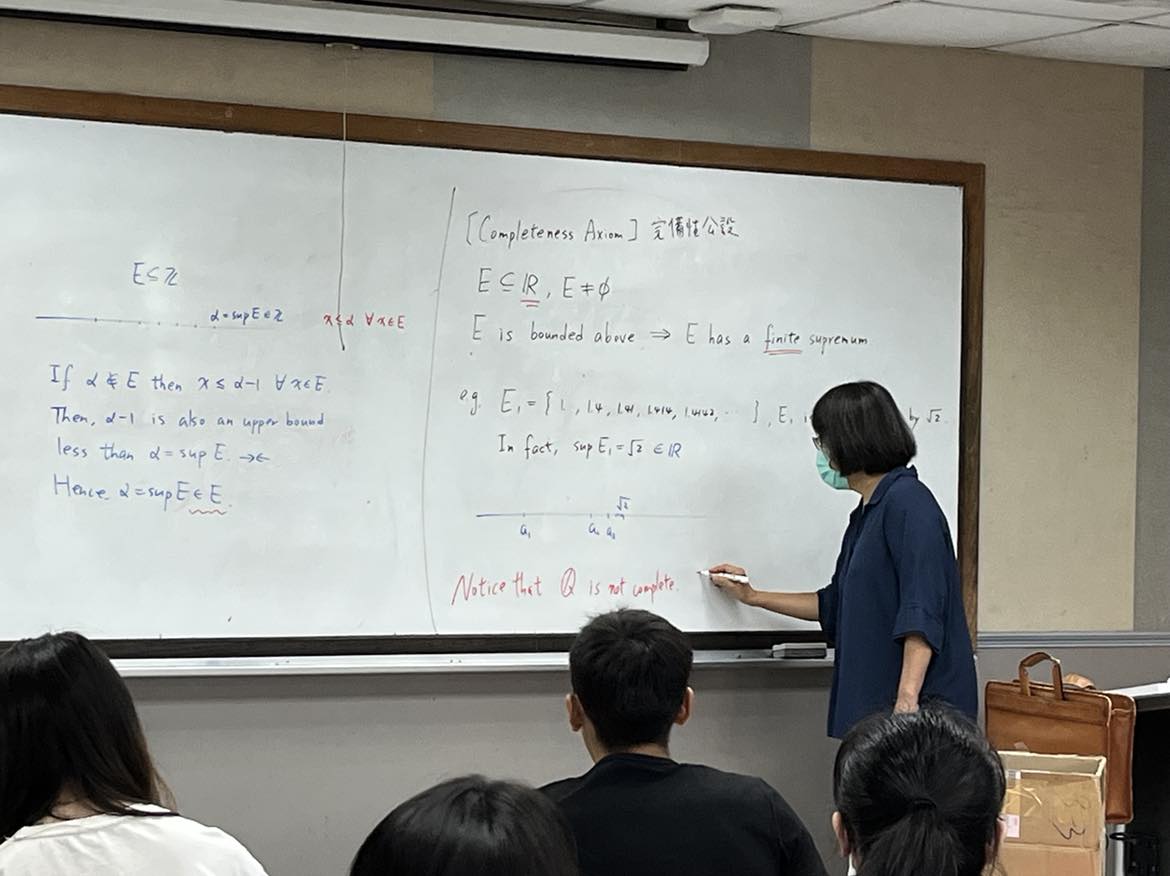 E ⊆ ℤ
α = sup E ∈ ℤ
x ≤ α ∀ x ∈ E
If α ∉ E then x ≤ α-1 ∀ x ∈ E.
Then, α-1 is also an upper bound
less than α = sup E. →←
Hence, α = sup E ∈ E.
[Completeness Axiom] 完備性公設
E ⊆ ℝ, E ≠ ϕ
E is bounded above ⇒ E has a finite supremum
e.g. E₁ = { 1, 1.4, 1.41, 1.414, 1.4142, ... }, E₁ by √2.
In fact, sup E₁ = √2 ∈ ℝ
√2
a₁
Notice that ℚ is not complete.